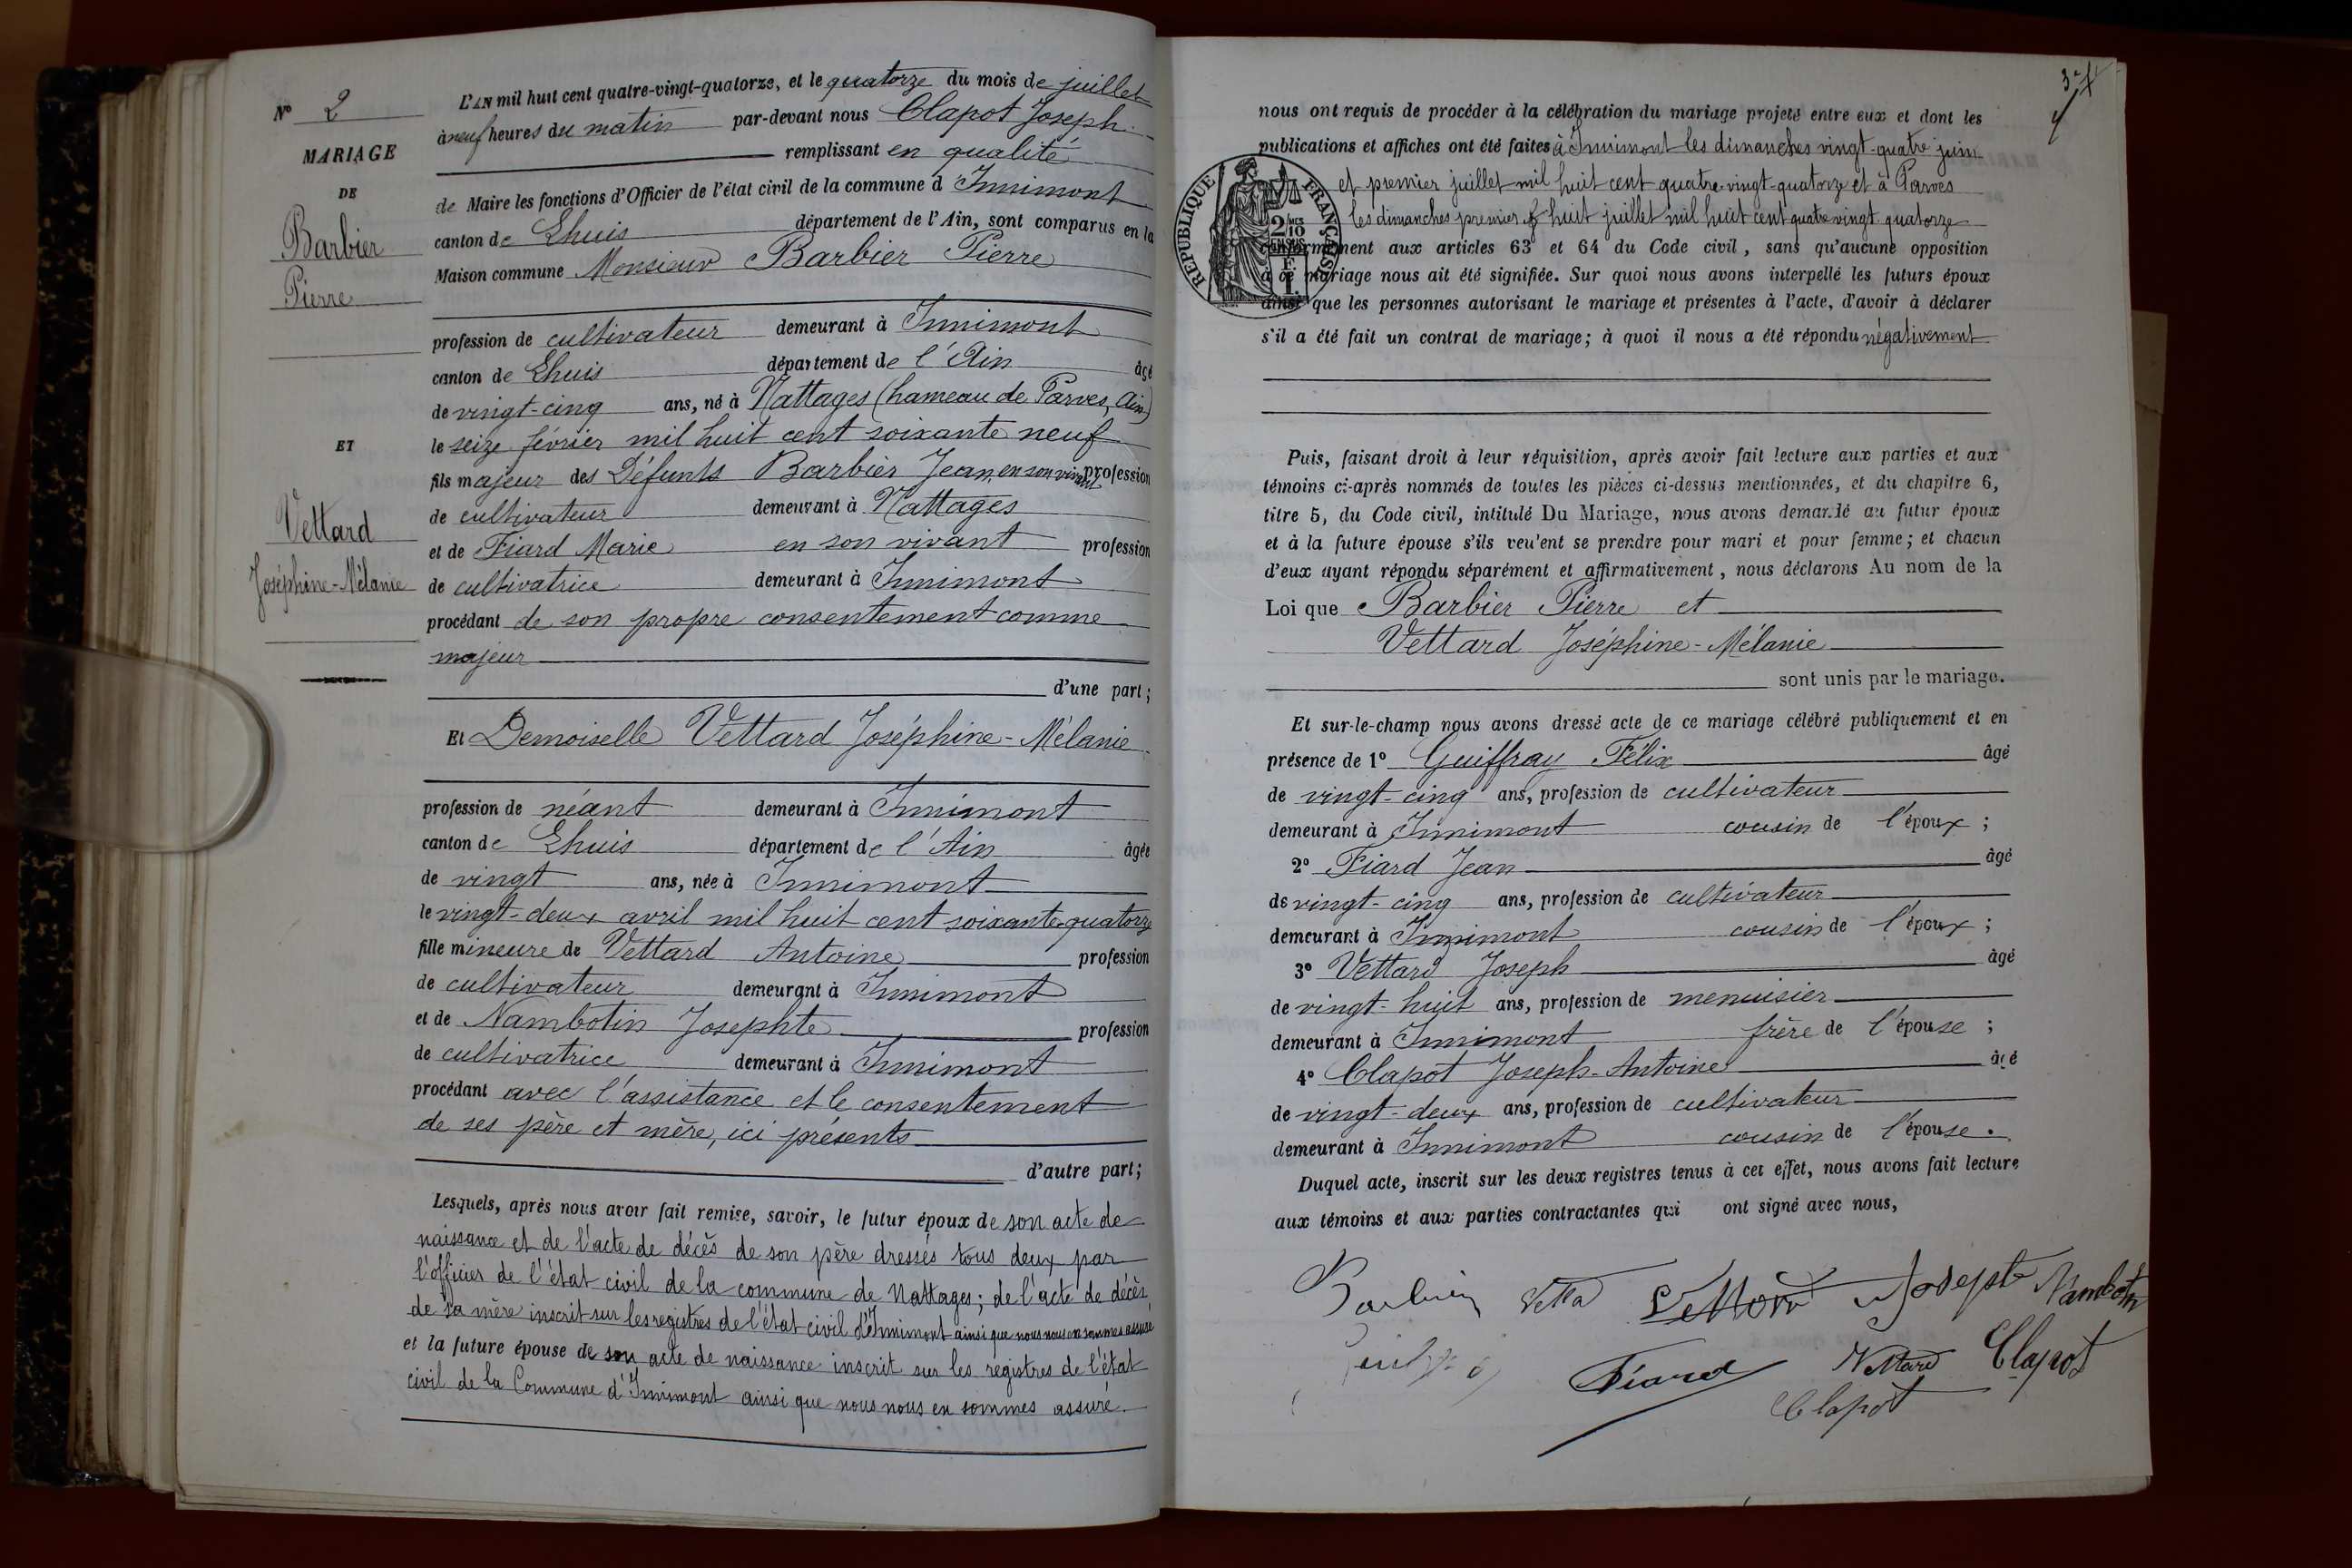 N° 2
MARIAGE
DE
Barbier
Pierre
ET
Vettard
Joséphine-Mélanie
L'AN mil huit cent quatre-vingt-quatorze, et le quatorze du mois de juillet
à neuf heures du matin par-devant nous Clapot Joseph
remplissant en qualité
de Maire les fonctions d'Officier de l'état civil de la commune d'Innimont
canton de Lhuis département de l'Ain, sont comparus en la
Maison commune Monsieur Barbier Pierre
profession de cultivateur demeurant à Innimont
canton de Lhuis département de l'Ain âgé
de vingt-cinq ans, né à Nattages (hameau de Parves, Ain)
le seize février mil huit cent soixante neuf
fils majeur des Défunts Barbier Jean, en son vivant profession
de cultivateur demeurant à Nattages
et de Fiard Marie en son vivant profession
de cultivatrice demeurant à Innimont
procédant de son propre consentement comme
majeur
d'une part;
Et Demoiselle Vettard Joséphine-Mélanie
profession de néant demeurant à Innimont
canton de Lhuis département de l'Ain âgée
de vingt ans, née à Innimont
le vingt-deux avril mil huit cent soixante-quatorze
fille mineure de Vettard Antoine profession
de cultivateur demeurant à Innimont
et de Nambotin Josephte profession
de cultivatrice demeurant à Innimont
procédant avec l'assistance et le consentement
de ses père et mère, ici présents
d'autre part;
Lesquels, après nous avoir fait remise, savoir, le futur époux de son acte de
naissance et de l'acte de décès de son père dressés tous deux par
l'officier de l'état civil de la commune de Nattages; de l'acte de décès
de sa mère inscrit sur les registres de l'état civil d'Innimont ainsi que nous nous en sommes assuré
et la future épouse de son acte de naissance inscrit sur les registres de l'état
civil de la Commune d'Innimont ainsi que nous nous en sommes assuré.
nous ont requis de procéder à la célébration du mariage projeté entre eux et dont les
publications et affiches ont été faites à Innimont les dimanches vingt-quatre juin
et premier juillet mil huit cent quatre-vingt-quatorze et à Parves
les dimanches premier & huit juillet mil huit cent quatre vingt quatorze
REPUBLIQUE FRANÇAISE
conformément aux articles 63 et 64 du Code civil, sans qu'aucune opposition
à ce mariage nous ait été signifiée. Sur quoi nous avons interpellé les futurs époux
ainsi que les personnes autorisant le mariage et présentes à l'acte, d'avoir à déclarer
s'il a été fait un contrat de mariage; à quoi il nous a été répondu négativement
Puis, faisant droit à leur réquisition, après avoir fait lecture aux parties et aux
témoins ci-après nommés de toutes les pièces ci-dessus mentionnées, et du chapitre 6,
titre 5, du Code civil, intitulé Du Mariage, nous avons demandé au futur époux
et à la future épouse s'ils veulent se prendre pour mari et pour femme; et chacun
d'eux ayant répondu séparément et affirmativement, nous déclarons Au nom de la
Loi que Barbier Pierre et
Vettard Joséphine-Mélanie
sont unis par le mariage.
Et sur-le-champ nous avons dressé acte de ce mariage célébré publiquement et en
présence de 1° Guiffray Félix âgé
de vingt-cinq ans, profession de cultivateur
demeurant à Innimont cousin de l'époux;
2° Fiard Jean âgé
de vingt-cinq ans, profession de cultivateur
demeurant à Innimont cousin de l'époux;
3° Vettard Joseph âgé
de vingt-huit ans, profession de menuisier
demeurant à Innimont frère de l'épouse;
4° Clapot Joseph-Antoine âgé
de vingt-deux ans, profession de cultivateur
demeurant à Innimont cousin de l'épouse.
Duquel acte, inscrit sur les deux registres tenus à cet effet, nous avons fait lecture
aux témoins et aux parties contractantes qui ont signé avec nous,
Barbier Josepte Nambotin
Fiard Vettard Clapot
Clapot